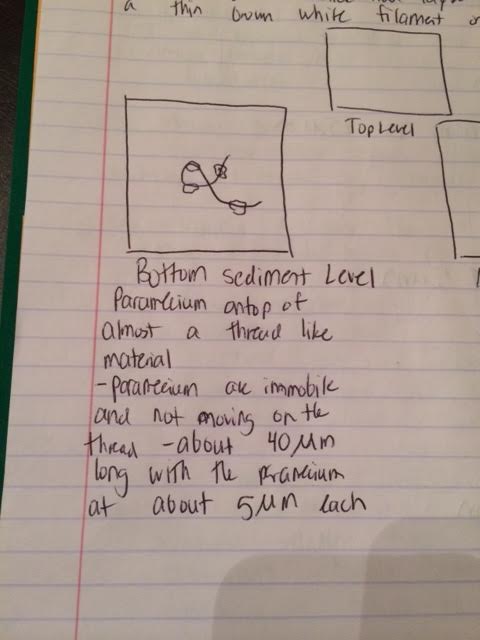 a thin white filament
Top Level
Bottom sediment Level
Paramecium ontop of
almost a thread like
material
-paramecium are immobile
and not moving on the
thread -about 40 µm
long with the paramecium
at about 5µm each